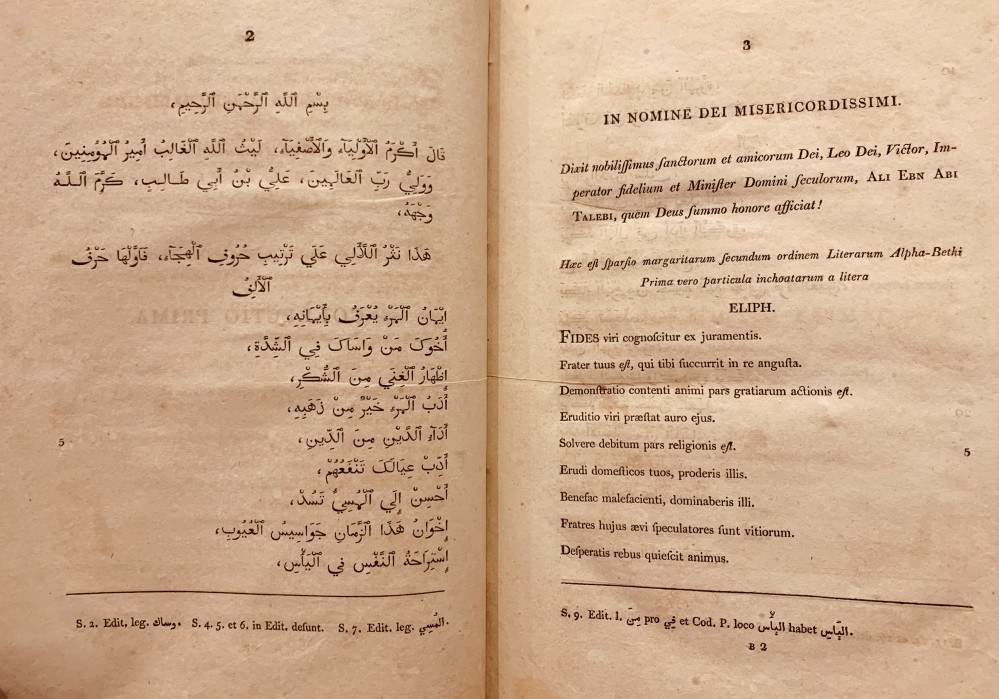 2
بِسْمِ اللّٰهِ الرَّحْمٰنِ الرَّحِيمِ،
قَالَ أَكْرَمُ الْأَوْلِيَآءِ وَالْأَصْفِيَآءِ، لَيْثُ اللّٰهِ الْغَالِبُ أَمِيرُ الْمُؤْمِنِينَ،
وَوَلِيُّ رَبِّ الْعَالَمِينَ، عَلِيُّ بْنُ أَبِي طَالِبِ، كَرَّمَ اللّٰهُ
وَجْهَهُ،
هٰذَا نَثْرُ اللَّآلِي عَلَي تَرْتِيبِ حُرُوفِ الْهِجَآءِ، فَأَوَّلُهَا حَرْفُ
الْأَلِفِ
إِيمَانُ الْمَرْءِ يُعْرَفُ بِأَيْمَانِهِ،
أَخُوكَ مَنْ وَاسَاكَ فِي الشِّدَّةِ،
إِظْهَارُ الْغِنَي مِنَ الشُّكْرِ،
أَدَبُ الْمَرْءِ خَيْرٌ مِنْ ذَهَبِهِ،
5
أَدَآءُ الدَّيْنِ مِنَ الدِّينِ،
أَدِّبْ عِيَالَكَ تَنْفَعْهُمْ،
أَحْسِنْ إِلَي الْمُسِيُّ تَسُدْ،
إِخْوَانُ هٰذَا الزَّمَانِ جَوَاسِيسُ الْعُيُوبِ،
إِسْتِرَاحَةُ النَّفْسِ فِي الْيَأْسِ،
S. 2. Edit. leg. وساك. S. 4. 5. et 6. in Edit. desunt. S. 7. Edit. leg. الْمُسِي.
3
IN NOMINE DEI MISERICORDISSIMI.
Dixit nobiliſſimus ſanctorum et amicorum Dei, Leo Dei, Victor, Im-
perator fidelium et Miniſter Domini ſeculorum, ALI EBN ABI
TALEBI, quem Deus ſummo honore afficiat!
Hæc eſt ſparſio margaritarum ſecundum ordinem Literarum Alpha-Bethi
Prima vero particula inchoatarum a litera
ELIPH.
FIDES viri cognoſcitur ex juramentis.
Frater tuus eſt, qui tibi ſuccurrit in re anguſta.
Demonſtratio contenti animi pars gratiarum actionis eſt.
Eruditio viri præſtat auro ejus.
Solvere debitum pars religionis eſt.
5
Erudi domeſticos tuos, proderis illis.
Benefac malefacienti, dominaberis illi.
Fratres hujus ævi ſpeculatores ſunt vitiorum.
Deſperatis rebus quieſcit animus.
S. 9. Edit. l. مِنَ pro فِي et Cod. P. loco الْيَأْس habet الْبَأْسِ.
B 2